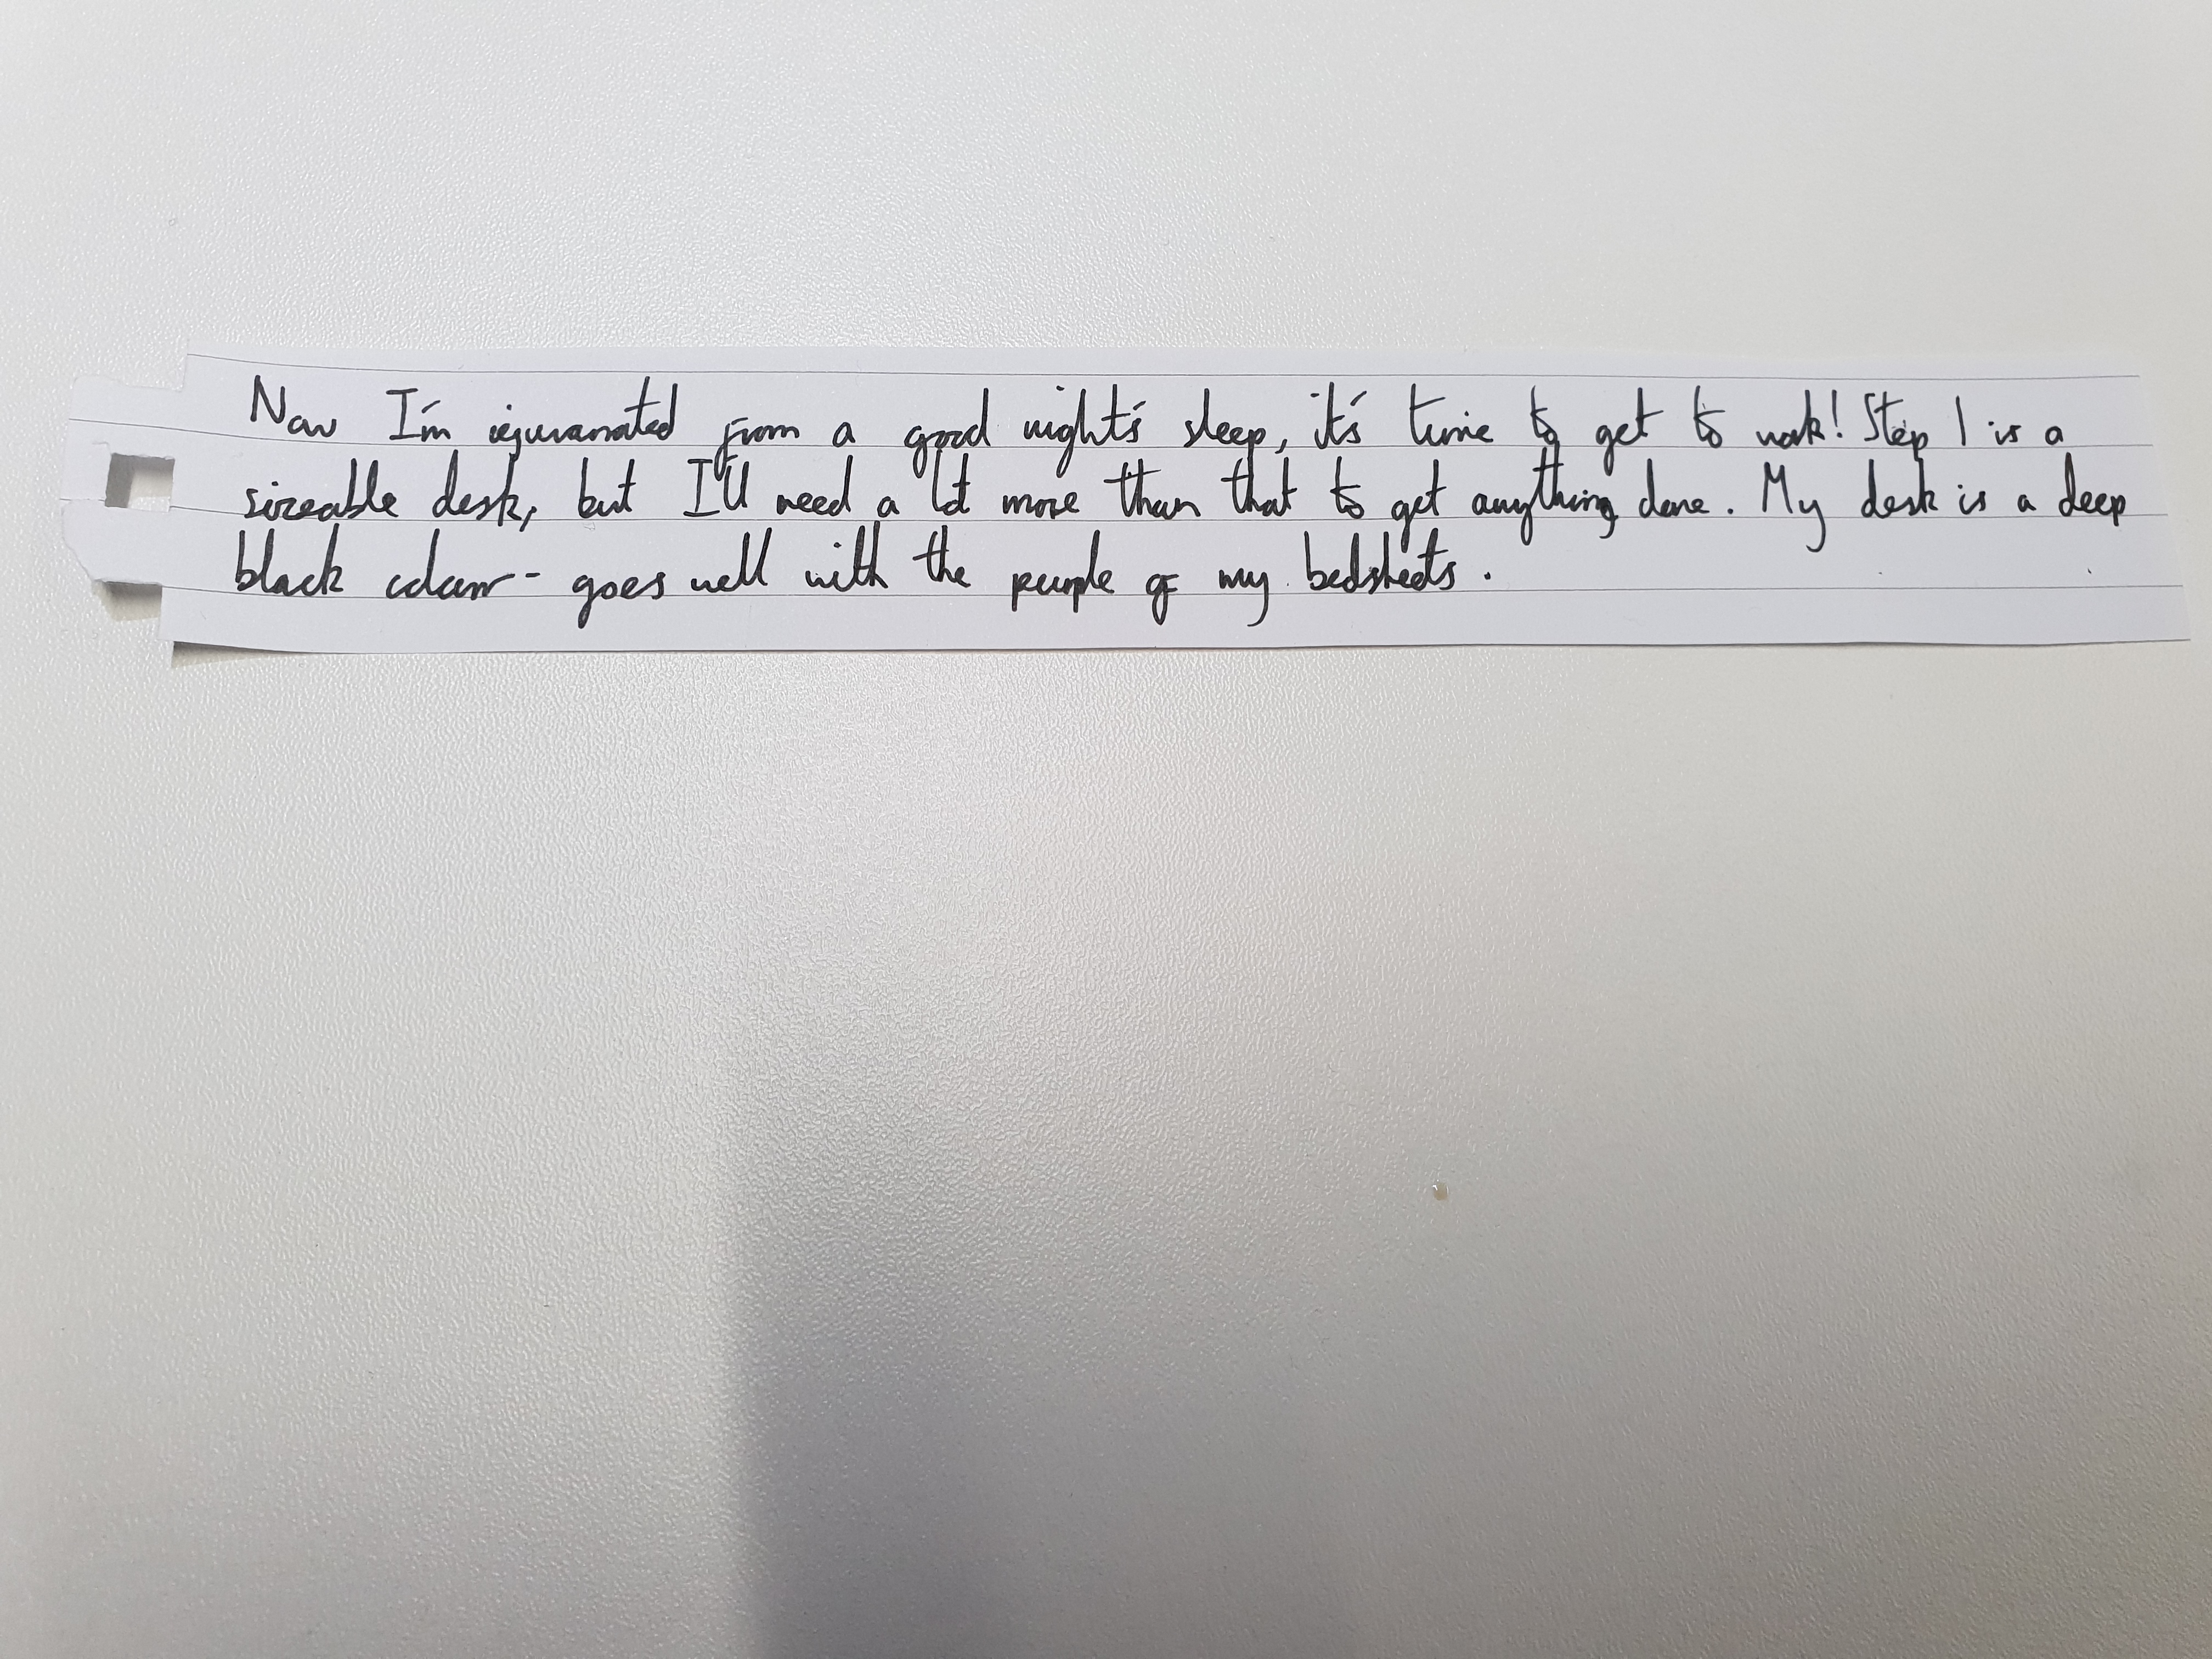 Now I'm rejuvenated from a good night's sleep, it's time to get to work! Step 1 is a
sizeable desk, but I'll need a lot more than that to get anything done. My desk is a deep
black colour - goes well with the purple of my bedsheets.